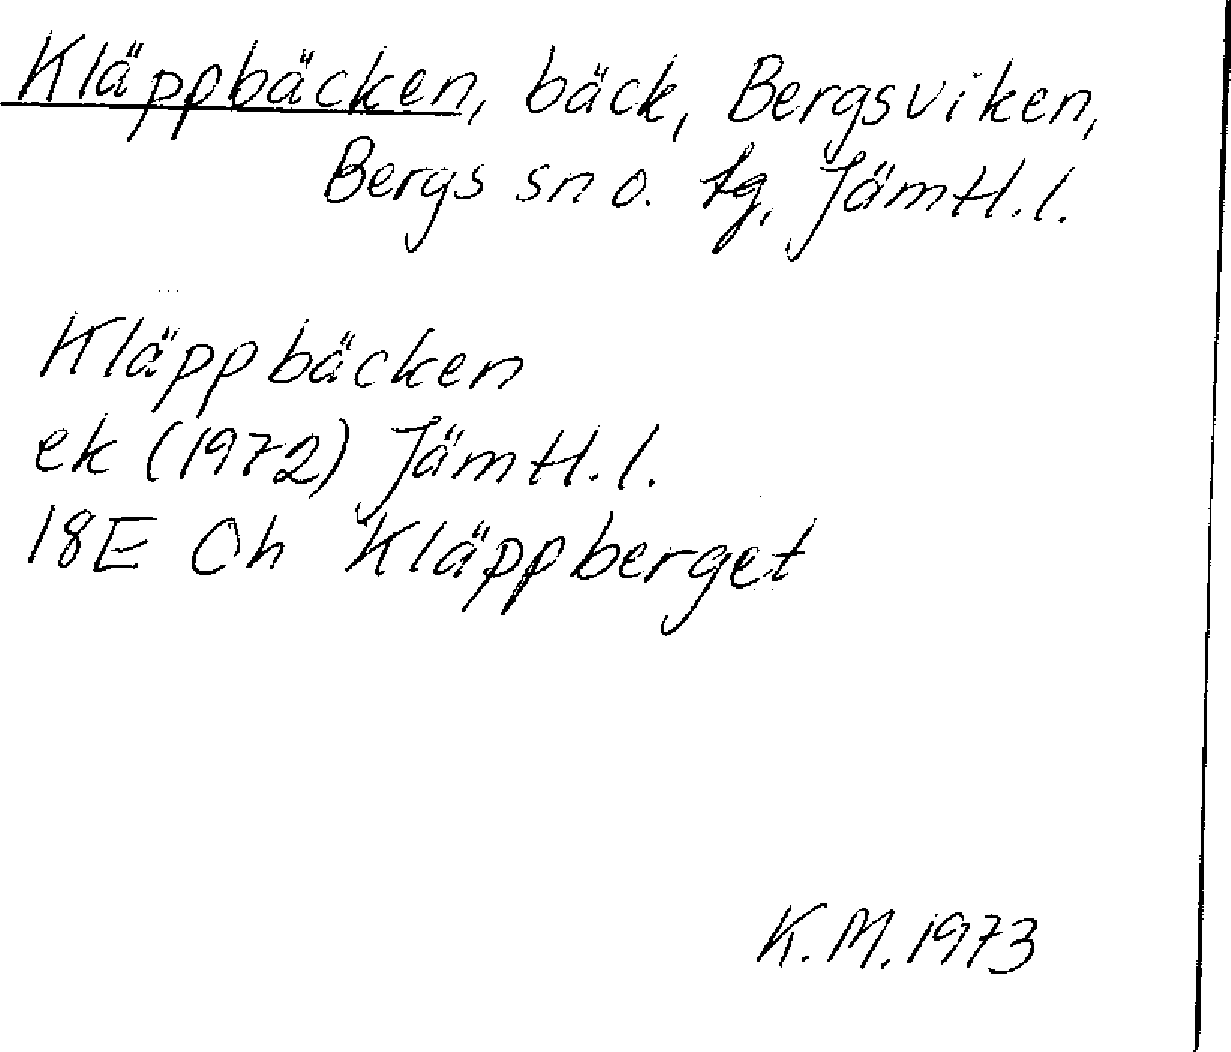 Kläppbäcken, bäck, Bergsviken,
Bergs sn o. tg, Jämtl. l.
Kläppbäcken
ek (1972) Jämtl. l.
18E Oh Kläppberget
K. M. 1973